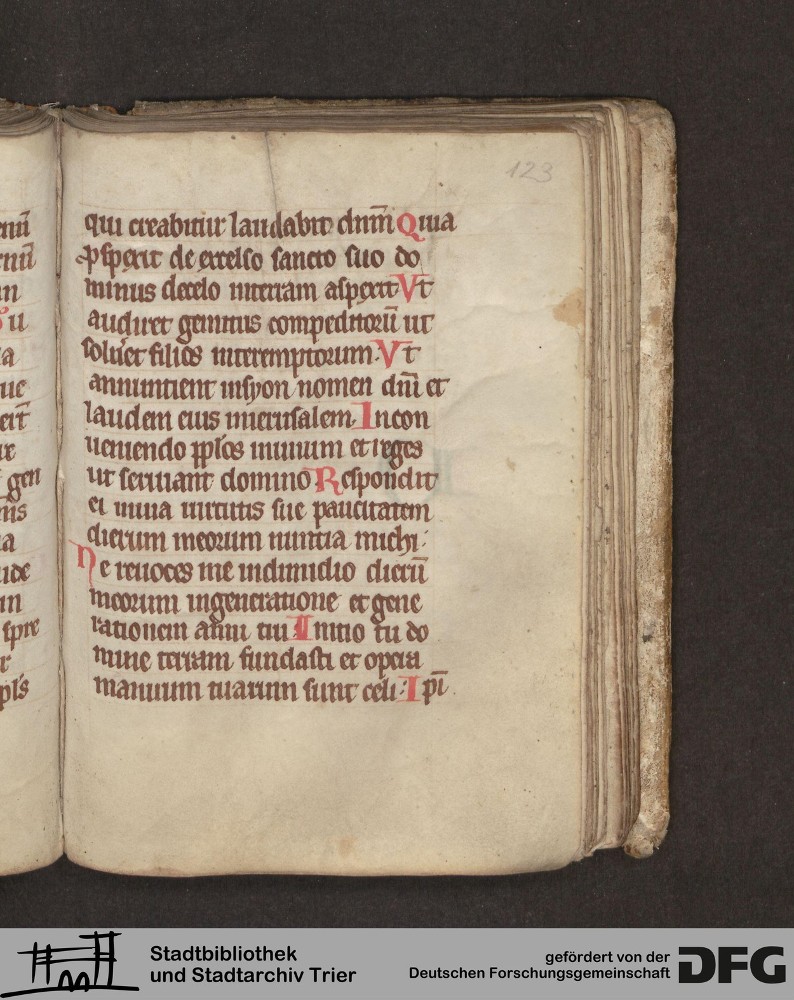 123
qui creabitur laudabit dnm̄ Quia
ꝓspexit de excelso sancto suo do
minus decelo interram aspexit Vt
audiret gemitus compeditorū ut
solůet filios interemptorum. Vt
annuntient insyon nomen dnī et
laudem eius inierusalem. Incon
ueniendo ppl̄os inunum et reges
ut seruiant domino Respondit
ei inuia uirtutis sue paucitatem
dierum meorum nuntia michi:
Ne reuoces me indimidio dierū
meorum ingeneratione et gene
rationem anni tui Initio tu do
mine terram fundasti et opera
manuum tuarum sunt celi: Ipī
Stadtbibliothek
und Stadtarchiv Trier
gefördert von der
Deutschen Forschungsgemeinschaft
DFG